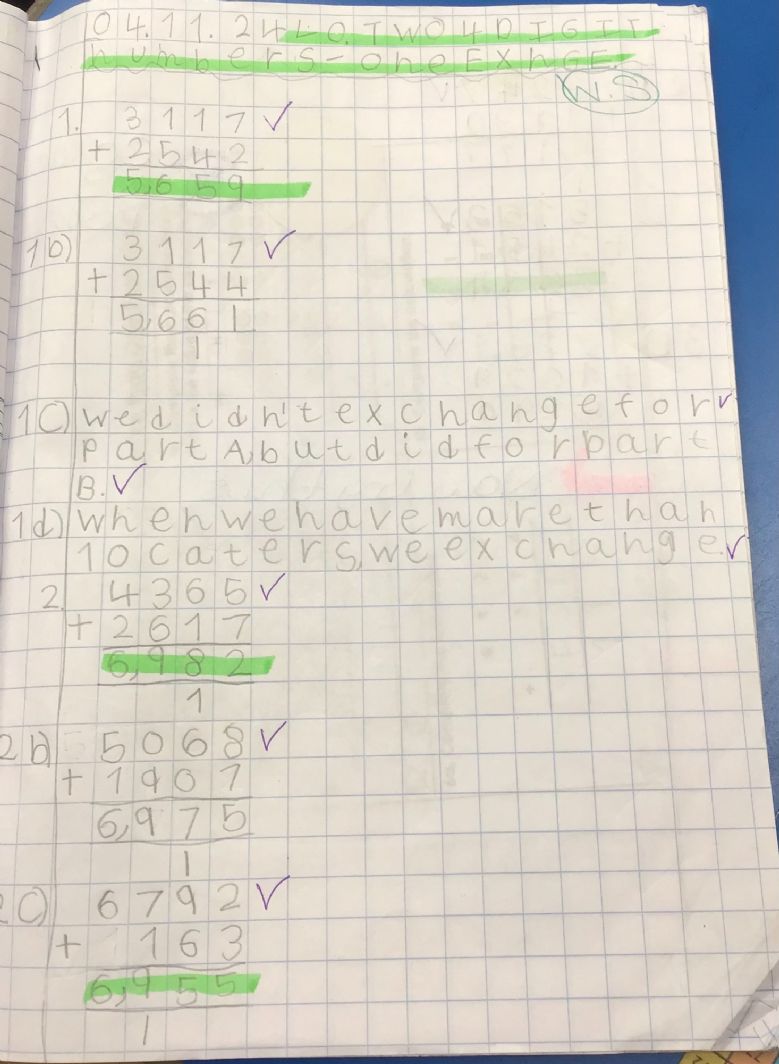 04.11.24 LO. TWO 4 DIGIT
numbers - one ExhGE.
W.S
1. 3117 ✓
+ 2542
5,659
1b) 3117 ✓
+ 2544
5,661
1
1C) we didn't exchange for ✓
part A, but did for part
B. ✓
1d) when we have mare than
10 caters, we exchange. ✓
2. 4365 ✓
+ 2617
6,982
1
2b) 5068 ✓
+ 1907
6,975
1
2C) 6792 ✓
+ 163
6,955
1